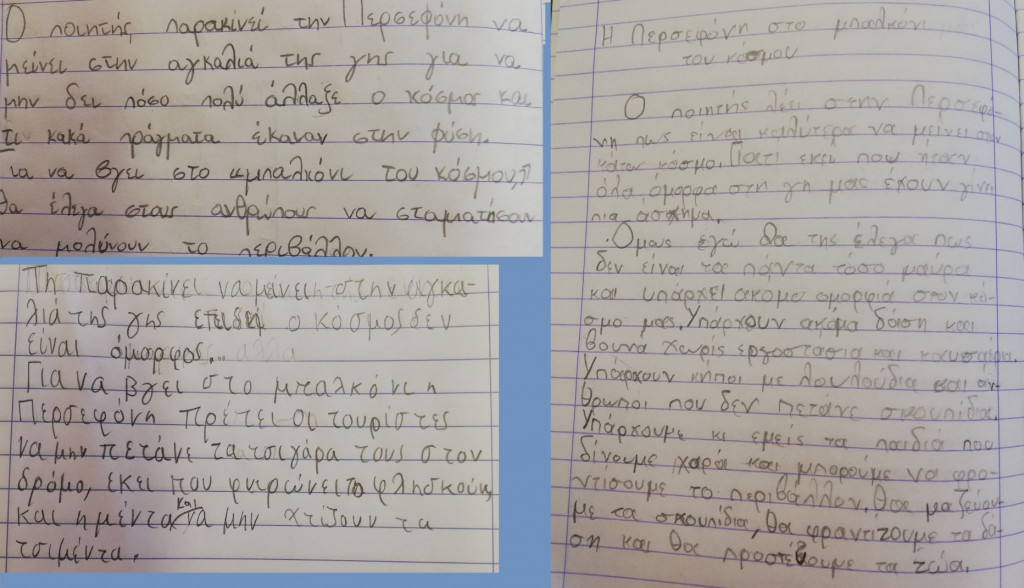 Ο ποιητής παρακινεί την Περσεφόνη να
μείνει στην αγκαλιά της γης για να
μην δει πόσο πολύ άλλαξε ο κόσμος και
τι κακά πράγματα έκαναν στην φύση.
ια να βγει στο «μπαλκόνι του κόσμου»
θα έλεγα στους ανθρώπους να σταματήσουν
να μολύνουν το περιβάλλον.
Τη παρακινεί να μάνει στην αγκα-
λιά της γης επειδή ο κόσμος δεν
είναι όμορφος.
Για να βγει στο μπαλκόνι η
Περσεφόνη πρέπει οι τουρίστες
να μην πετάνε τα τσιγάρα τους στον
δρόμο, εκεί που φυτρώνει το φλησκούνι
και η μέντα και να μην χτίζουν τα
τσιμέντα.
Η Περσεφόνη στο μπαλκόνι
του κόσμου
Ο ποιητής λέει στην Περσεφό-
νη πως είναι καλύτερα να μείνει στον
κάτω κόσμο. Γιατί εκεί που ήταν
όλα όμορφα στη γη μας έχουν γίνει
πια άσχημα.
Όμως εγώ θα της έλεγα πως
δεν είναι τα πάντα τόσο μαύρα
και υπάρχει ακόμα ομορφιά στον κό-
σμο μας. Υπάρχουν ακόμα δάση και
βουνά χωρίς εργοστάσια και καυσαέρια.
Υπάρχουν κήποι με λουλούδια και άν-
θρωποι που δεν πετάνε σκουπίδια.
Υπάρχουμε κι εμείς τα παιδιά που
δίνουμε χαρά και μπορούμε να φρο-
ντίσουμε το περιβάλλον. Θα μαζεύου-
με τα σκουπίδια, θα φραντίζουμε τα δά-
ση και θα προσέχουμε τα ζώα.